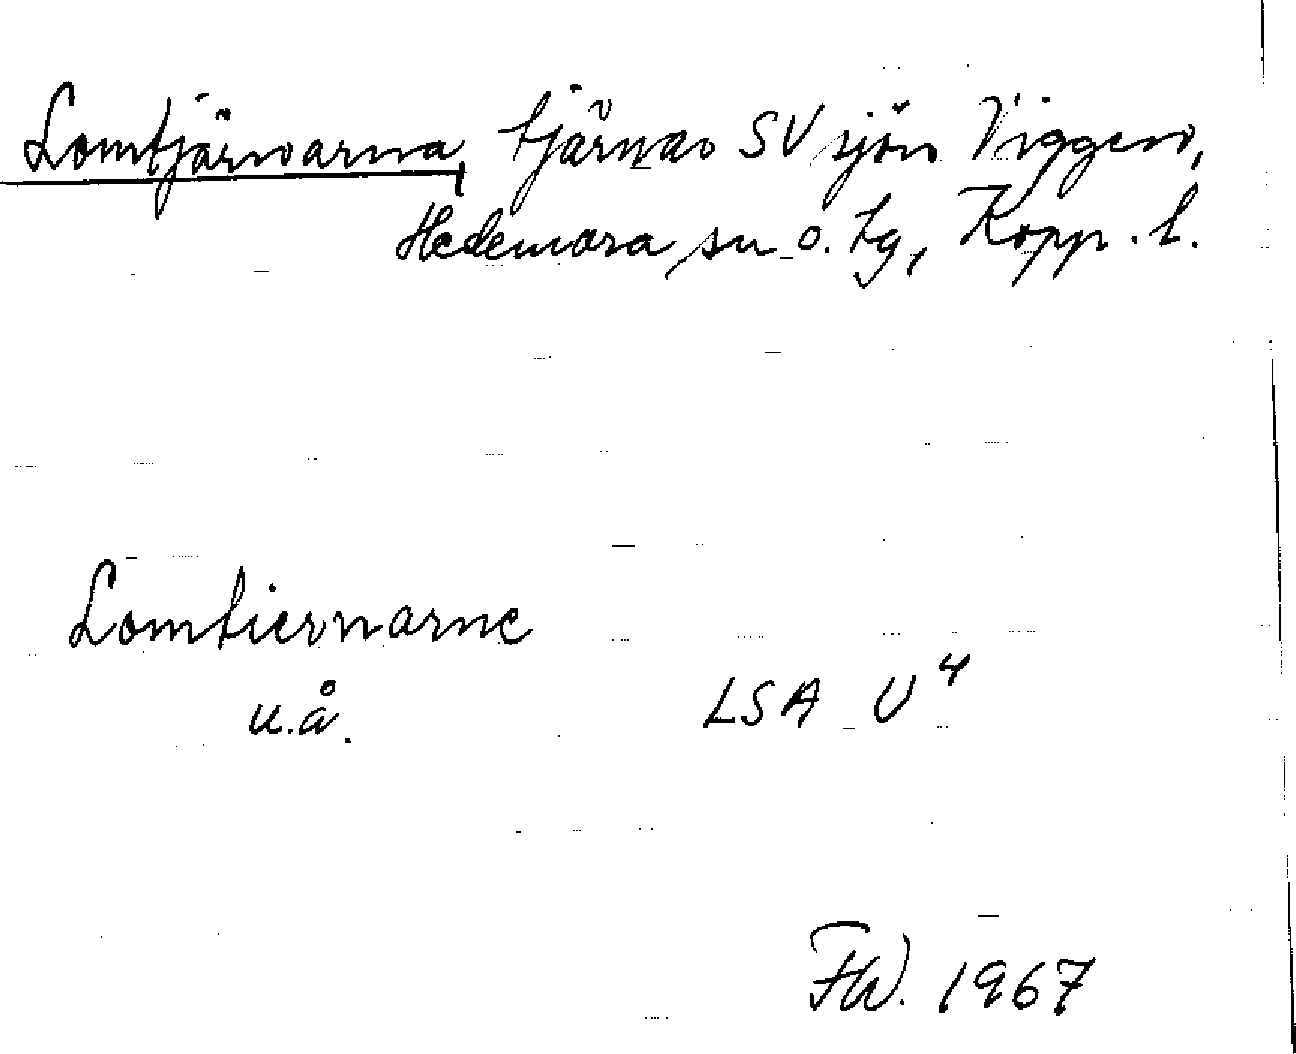 Lomtjärnarna, tjärnar SV sjön Viggen,
Hedemora sn o. tg, Kopp. l.
Lomtiernarne
u.å.
LSA U4
FW. 1967